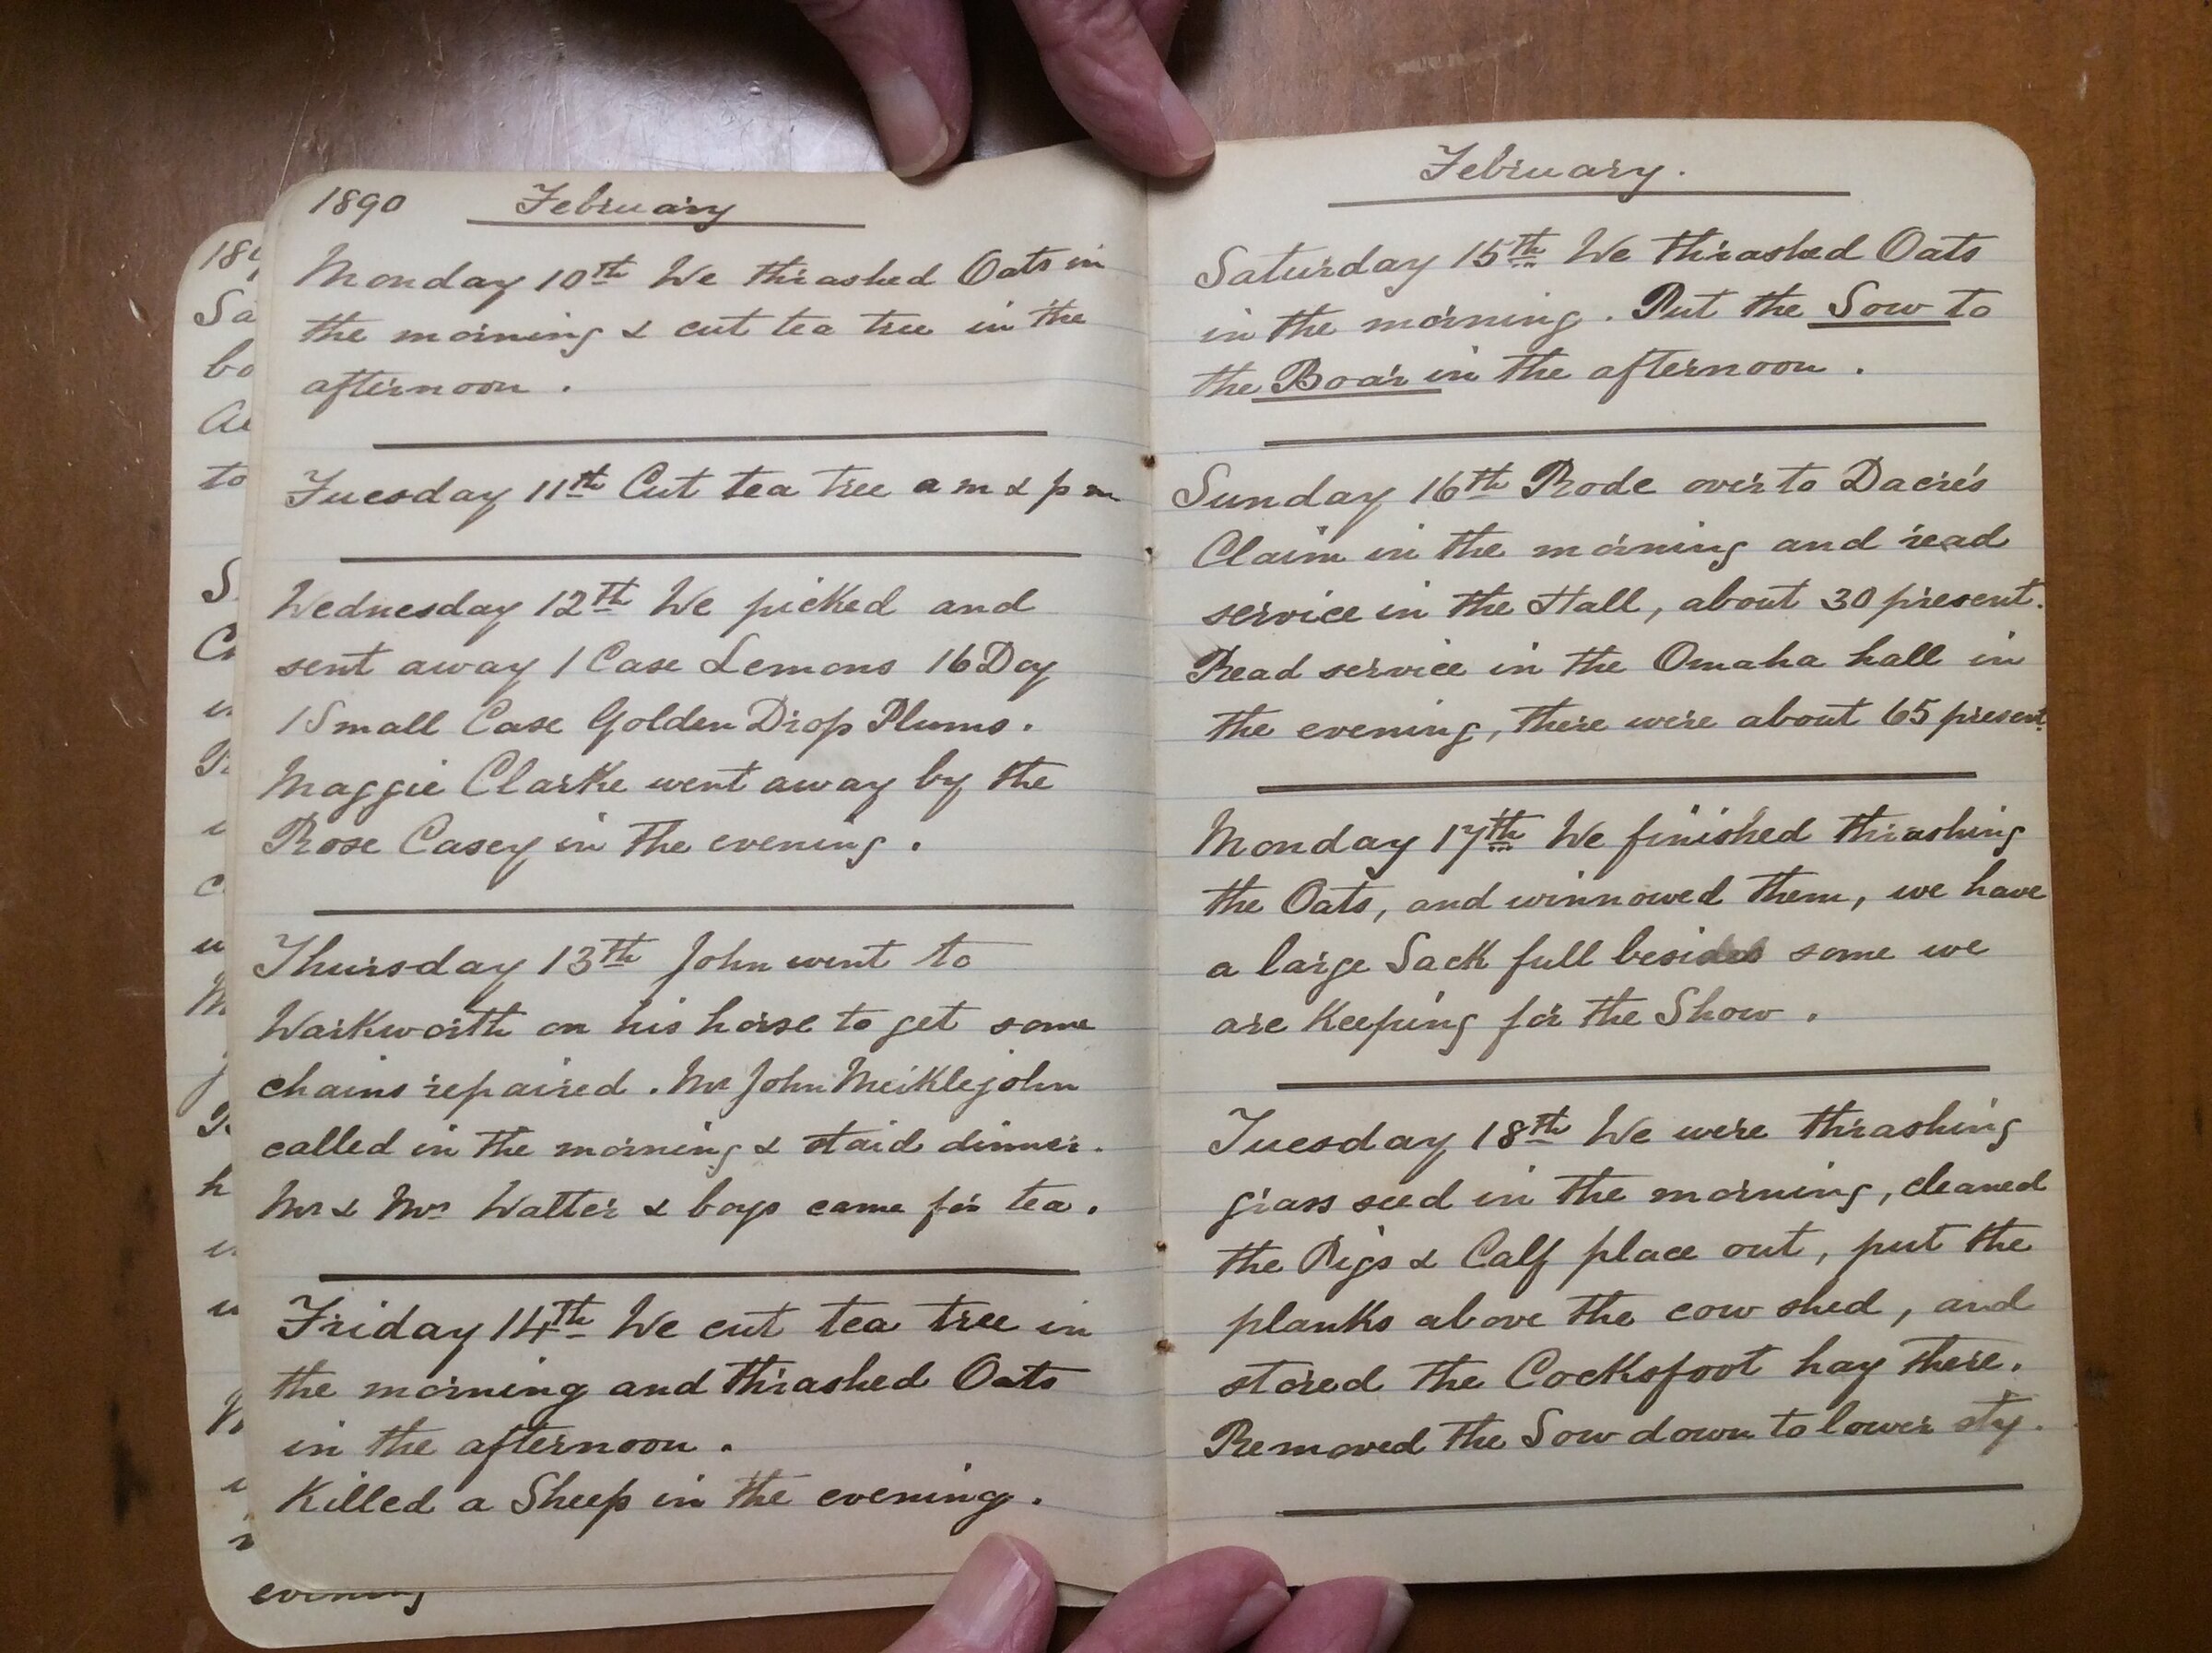 1890 February
Monday 10th We thrashed Oats in
the morning & cut tea tree in the
afternoon .
Tuesday 11th Cut tea tree a m & p m
Wednesday 12th We picked and
sent away 1 Case Lemons 16 Doz
1 Small Case Golden Drop Plums.
Maggie Clarke went away by the
Rose Casey in the evening .
Thursday 13th John went to
Warkworth on his horse to get some
chains repaired . Mr John Meiklejohn
called in the morning & staid dinner.
Mr & Mrs Walter & boys came for tea .
Friday 14th We cut tea tree in
the morning and thrashed Oats
in the afternoon .
Killed a Sheep in the evening .
February.
Saturday 15th We thrashed Oats
in the morning . Put the Sow to
the Boar in the afternoon .
Sunday 16th Rode over to Dacre's
Claim in the morning and read
service in the Hall, about 30 present.
Read service in the Omaha hall in
the evening, there were about 65 present.
Monday 17th We finished thrashing
the Oats, and winnowed them, we have
a large Sack full besides some we
are Keeping for the Show .
Tuesday 18th We were thrashing
grass seed in the morning, cleaned
the Pigs & Calf place out, put the
planks above the cow shed, and
stored the Cocksfoot hay there.
Removed the Sow down to lower sty.
evening